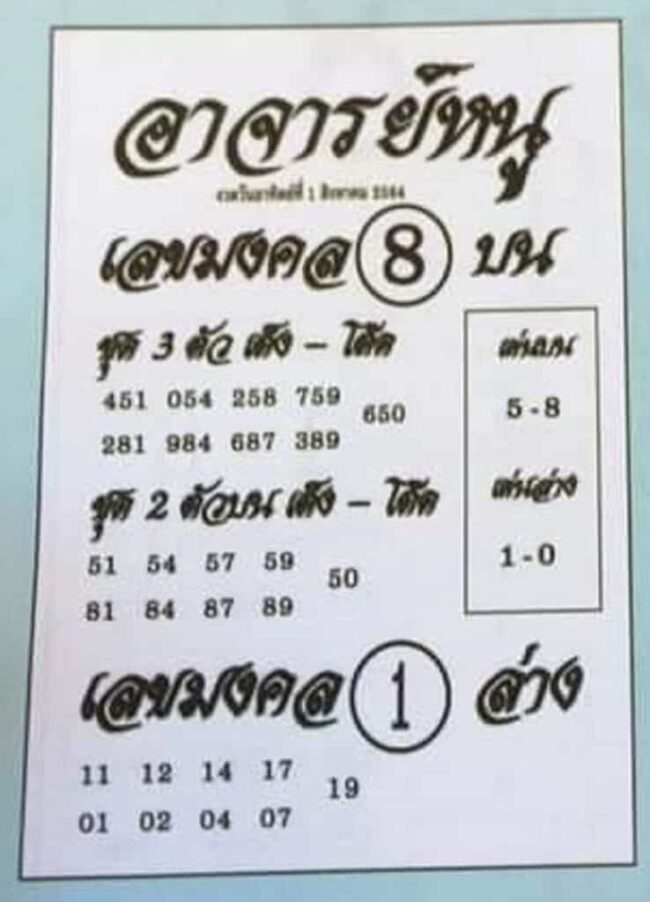 อาจารย์หนู
งวดวันอาทิตย์ที่ 1 สิงหาคม 2564
เลขมงคล 8 บน
ชุด 3 ตัว เต็ง - โต๊ด
451 054 258 759
650
281 984 687 389
เด่นบน
5 - 8
ชุด 2 ตัวบน เต็ง - โต๊ด
51 54 57 59
50
81 84 87 89
เด่นล่าง
1 - 0
เลขมงคล 1 ล่าง
11 12 14 17
19
01 02 04 07